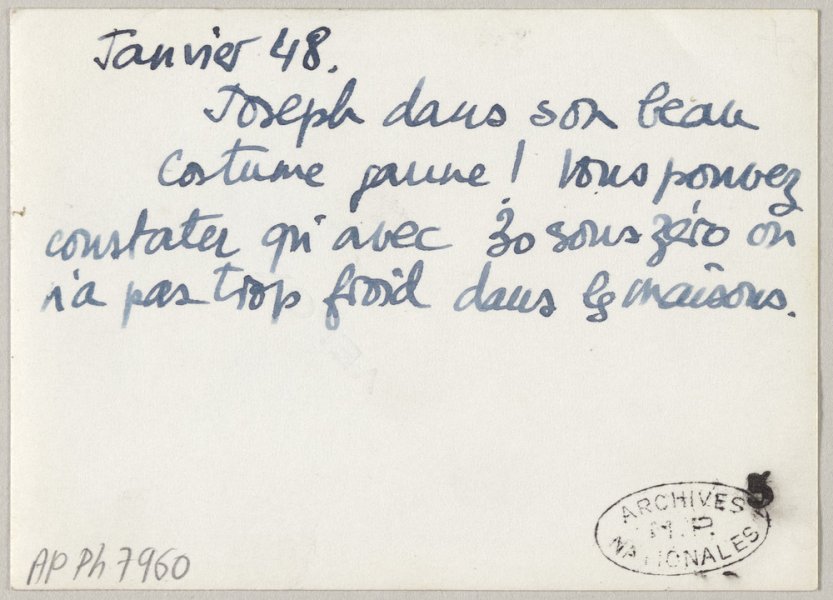 Janvier 48.
Joseph dans son beau
costume jaune ! Vous pouvez
constater qu'avec 30 sous zéro on
n'a pas trop froid dans les maisons.
5
ARCHIVES
M.P.
NATIONALES
AP Ph 7960